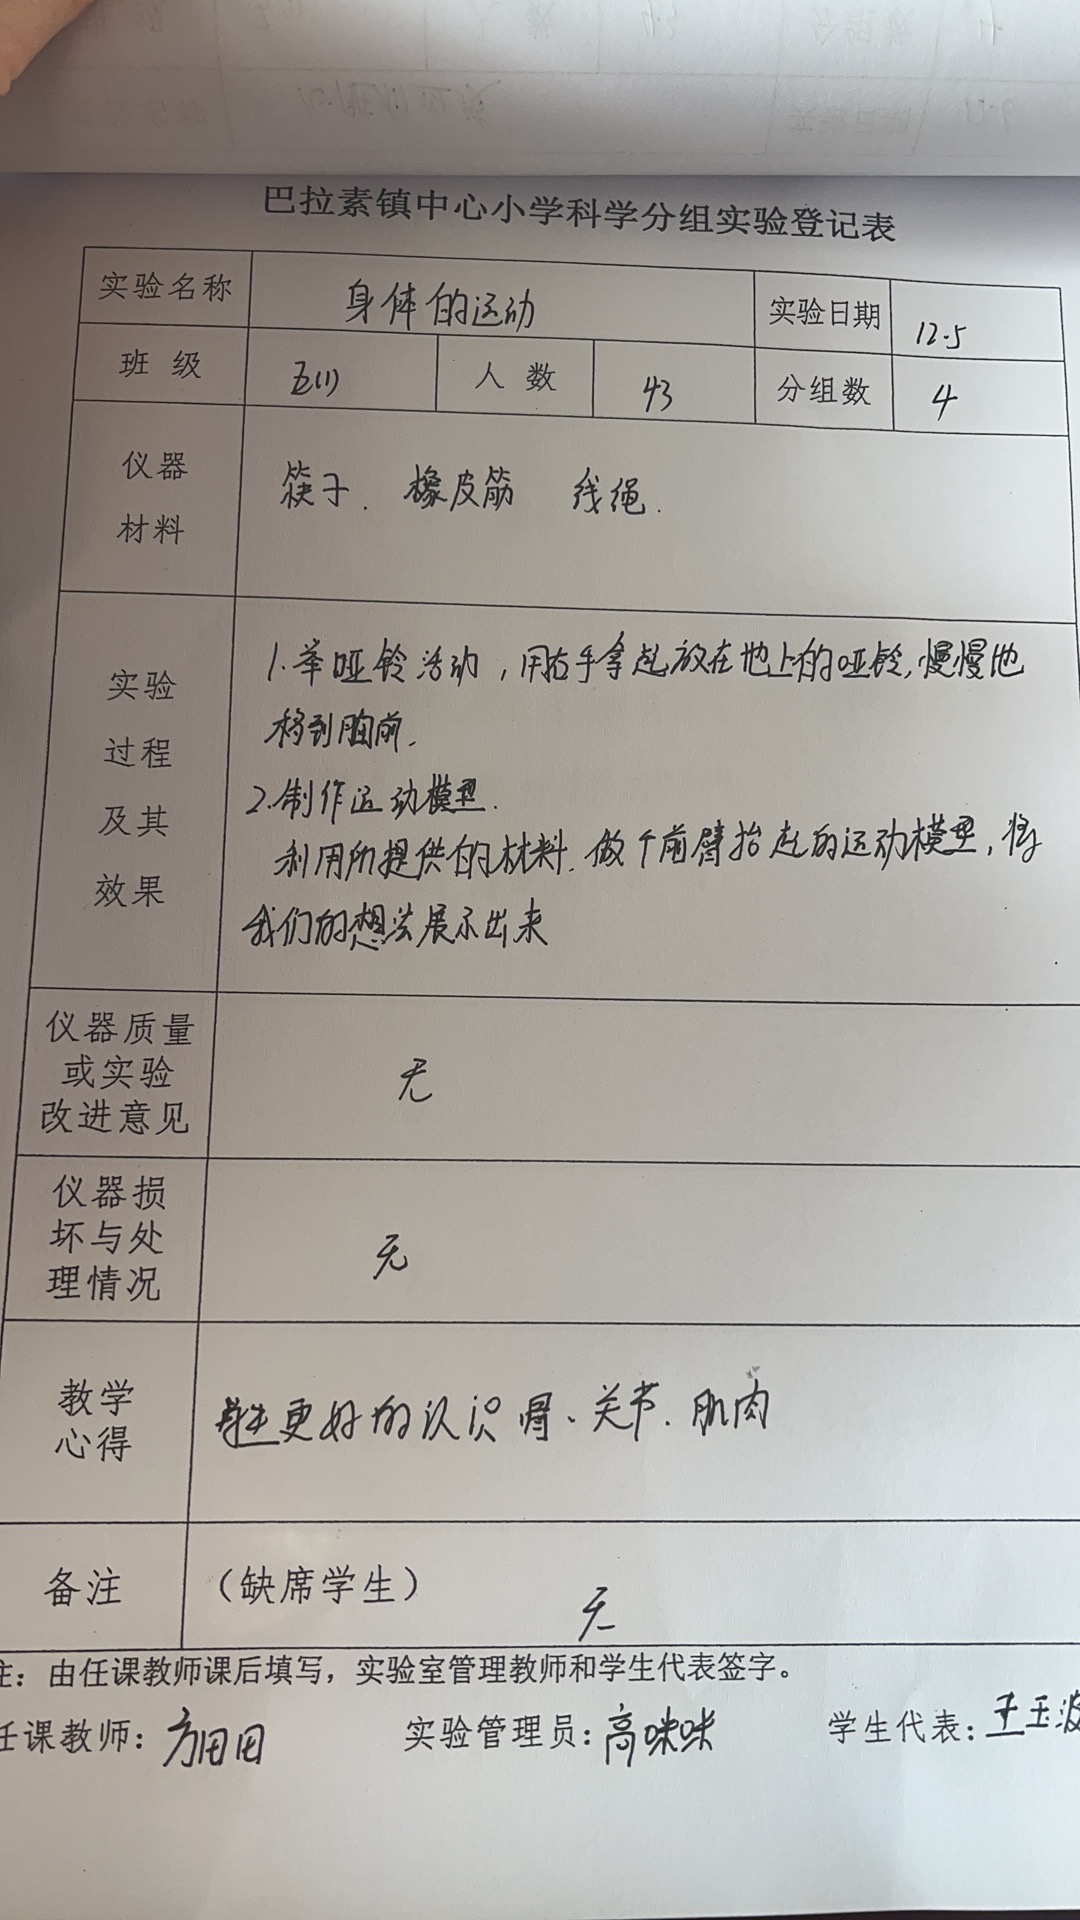 巴拉素镇中心小学科学分组实验登记表
实验名称 身体的运动 实验日期 12.5
班级 五(1) 人数 43 分组数 4
仪器
材料
筷子. 橡皮筋 线绳.
实验
过程
及其
效果
1.举哑铃活动,用右手拿起放在地上的哑铃,慢慢地
移到胸前.
2.制作运动模型.
利用所提供的材料.做个前臂抬起的运动模型,将
我们的想法展示出来
仪器质量
或实验
改进意见
无
仪器损
坏与处
理情况
无
教学
心得
学生更好的认识骨、关节、肌肉
备注 (缺席学生) 无
注：由任课教师课后填写，实验室管理教师和学生代表签字。
任课教师：方田田 实验管理员：高咪咪 学生代表：王玉波